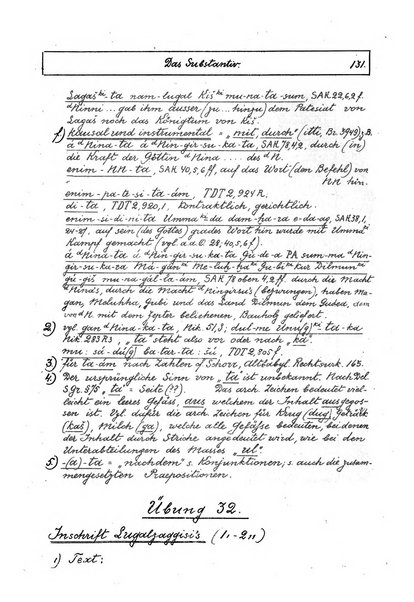 Das Substantiv. 131.
Lagaš ki-ta nam-lugal Kiš ki mu-na-ta-sum, SAK 22,6,2 f.
dNinni ... gab ihm ausser (zu ... hinzu) dem Patesiat von
Lagaš noch das Königtum von Kiš.
f) kausal und instrumental = "mit, durch" (itti, Br. 3948); z.B.
á dNina-ta á dNin-gir-su-ka-ta, SAK 78,4,2, durch (in)
die Kraft der Göttin dNina .... des dN.
enim-NN-ta, SAK 40,5,6 ff, auf das Wort (den Befehl) von
NN hin.
enim-pa-te-si-ta-àm, TDT 2,924 R.
di-ta, TDT 2,920,1, kontraktlich, gerichtlich.
enim-si-di-ni-ta Umma ki da dam-ḫa-ra e-da-ag, SAK 38,1,
24-27, auf sein (des Gottes) grades Wort hin wurde mit Umma ki
Kampf gemacht (vgl a.a.O. 28; 40,5,6 f.).
á dNina-ta á dNin-gir-su-ka-ta Gù-de-a PA sum-ma dNin-
gir-su-ka-ra Má-gan ki Me-luḫ-ḫa ki Gu-bi ki kur Dilmun ki
gú-giš mu-na-gál-la-àm, SAK 78 oben 4,2 ff. durch die Macht
dNina's, durch die Macht dNingirsu's (bezwungen), haben Ma-
gan, Melukha, Gubi und das Land Dilmun dem Gudea, dem
von dN. mit dem Zepter beliehenen, Bauholz geliefert.
2) vgl gan dNina-ka-ta, Nik. 51,3; dul-me Unu(g) ki ta-ka
Nik. 283 R3, "ta" steht also vor oder nach "ka".
mu-sá-du(g) ba-tar-ta-šù, TDT 2,805 f.
3) für ta-àm nach Zahlen cf Schorr, Altbabyl. Rechtsurk. 163.
4) Der ursprüngliche Sinn von "ta" ist unbekannt. Nach Del
S.Gr. §75 "ta" = Seit (??) Das arch. Zeichen bedeutet viel-
leicht ein leeres Gefäss, aus welchem der Inhalt ausgegos-
sen ist. Vgl dafür die arch Zeichen für Krug (dug), Getränk
(kaš), Milch (ga), welche alle Gefässe bedeuten, bei denen
der Inhalt durch Striche angedeutet wird, wie bei den
Unterabteilungen des Masses "ul".
5) -(a)-ta = "nachdem" s. Konjunktionen; s. auch die zusam-
mengesetzten Praepositionen.
Übung 32.
Inschrift Lugalzaggisi's (1,1-2,11)
1) Text: